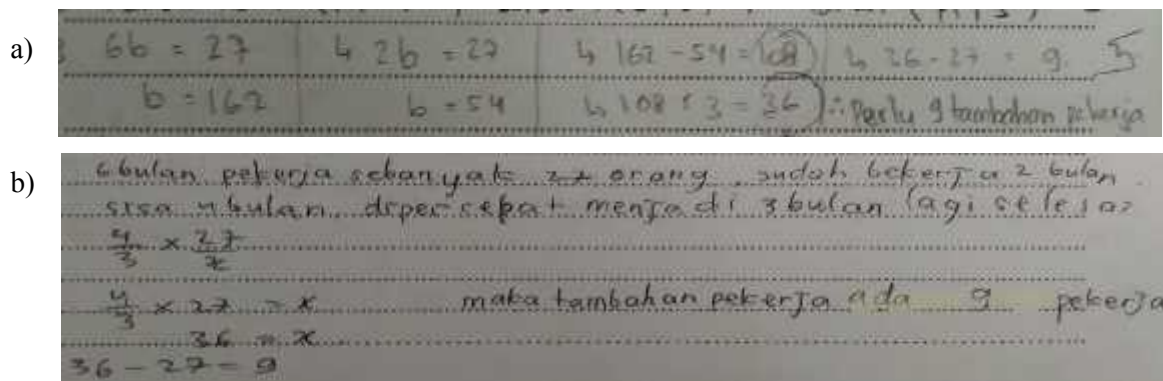 a)
6b = 27 ↳ 2b = 27 ↳ 162 - 54 = 108 ↳ 36 - 27 = 9.
b = 162 b = 54 ↳ 108 : 3 = 36 ∴ Perlu 9 tambahan pekerja
b)
6 bulan pekerja sebanyak 27 orang, sudah bekerja 2 bulan.
sisa 4 bulan dipercepat menjadi 3 bulan lagi selesai
4/3 × 27/x
4/3 × 27 = x maka tambahan pekerja ada 9 pekerja
36 = x
36 - 27 = 9